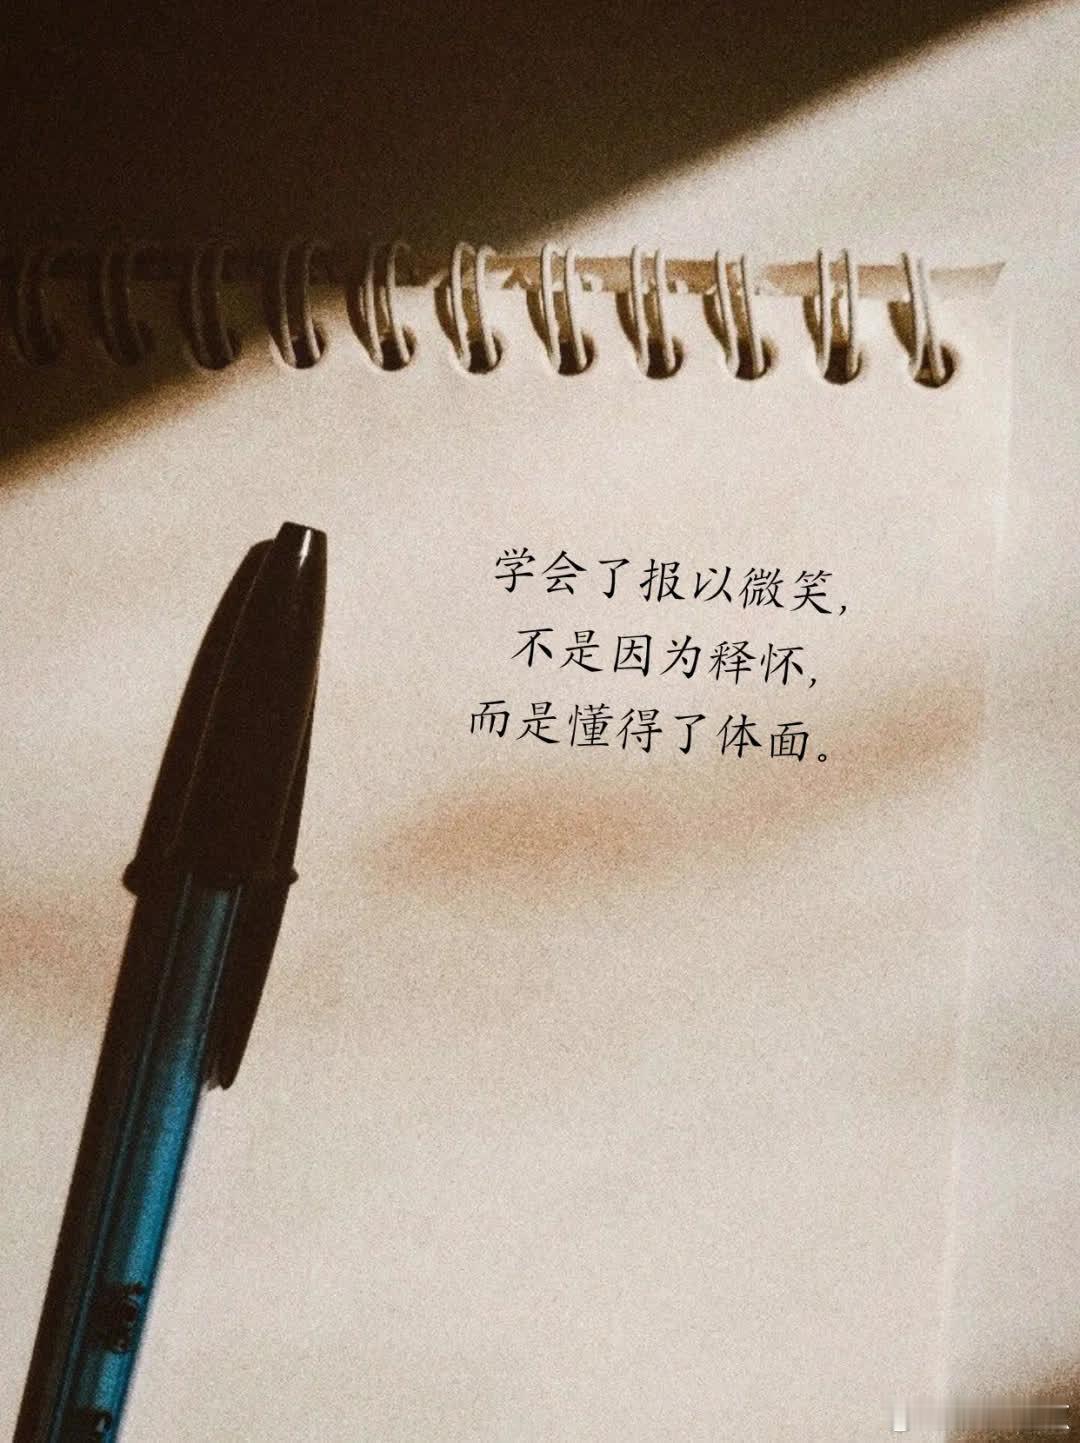 学会了报以微笑，
不是因为释怀，
而是懂得了体面。